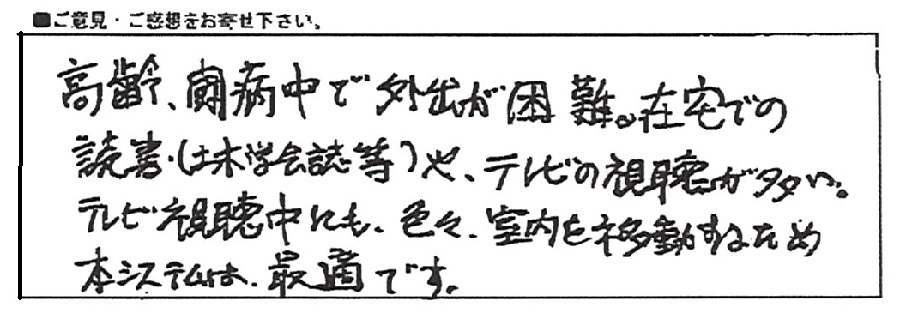 ■ご意見・ご感想をお寄せ下さい。
高齢、闘病中で外出が困難。在宅での
読書・(土木学会誌等)や、テレビの視聴が多い。
テレビ視聴中にも、色々、室内を移動するため
本システムは、最適です。